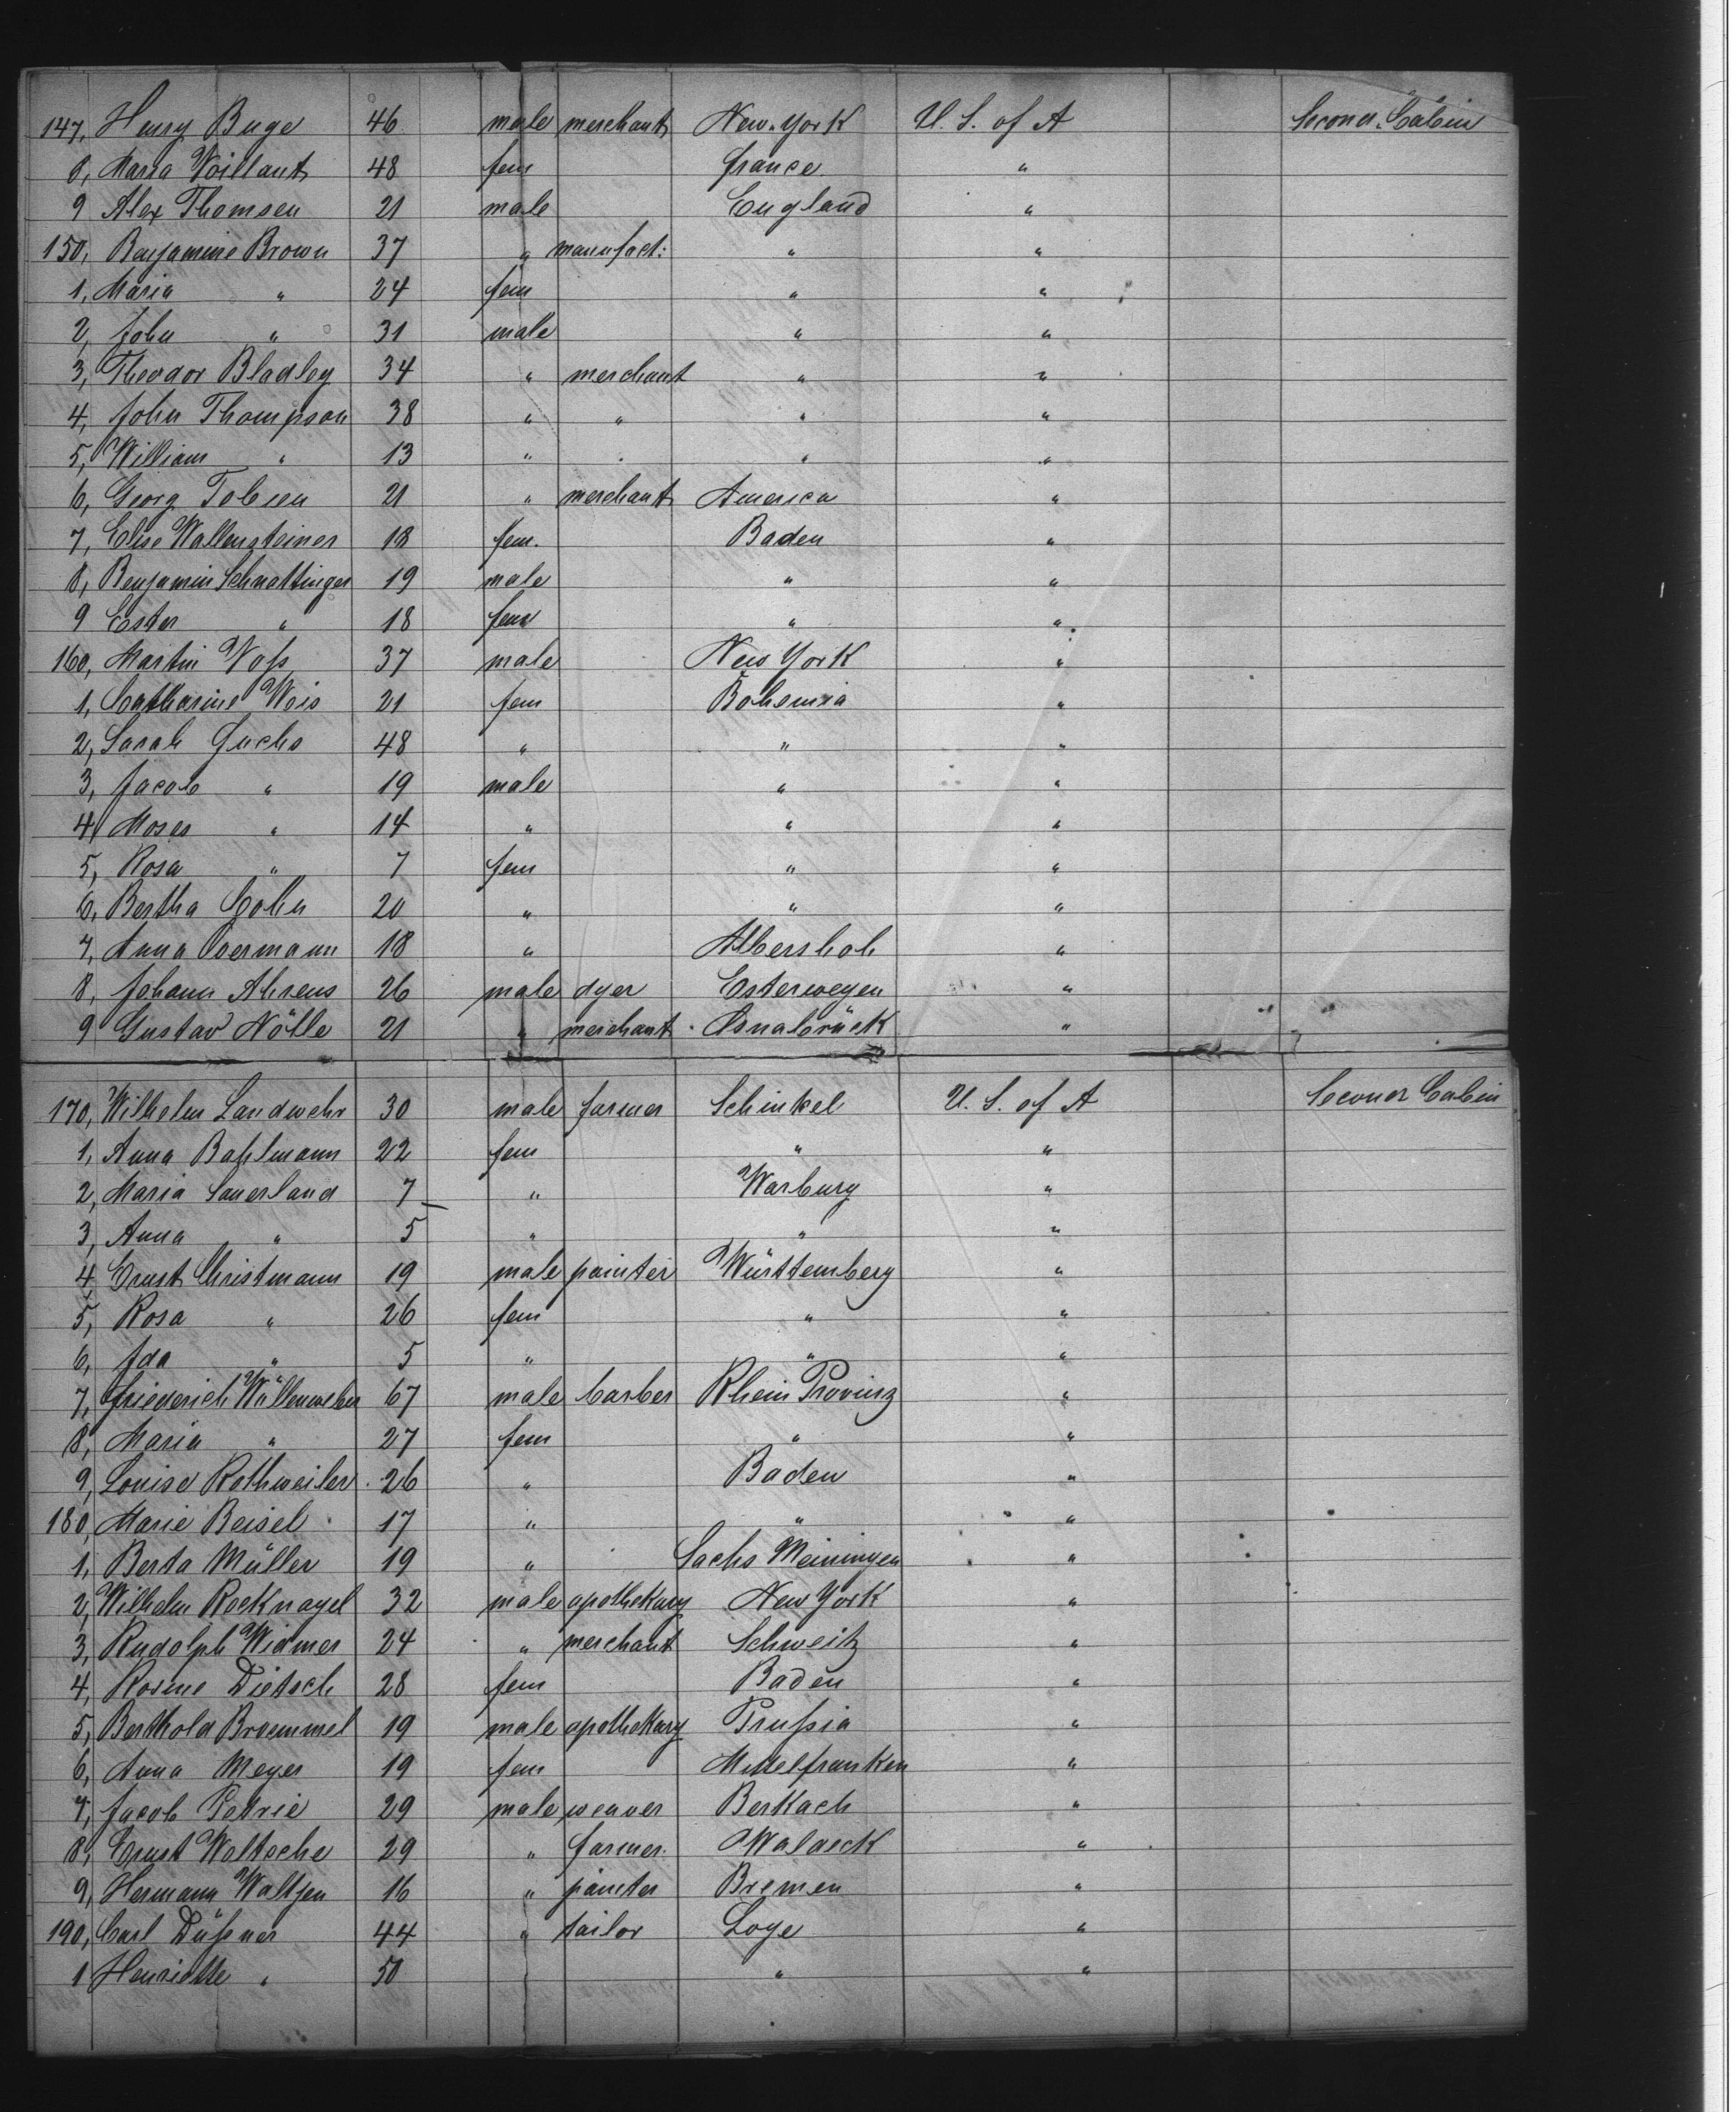 147, Henry Buge 46 male merchant New-York U. S. of A Second Cabin
8, Maria Voillant 48 fem france "
9 Alex Thomsen 21 male England "
150, Benjamine Brown 37 " manufact: " "
1, Maria " 24 fem " "
2, John " 31 male " "
3, Theodor Bladley 34 " merchant " "
4, John Thompson 38 " " " "
5, William " 13 " " "
6, Georg Tobien 21 " merchant America "
7, Elise Wallensteiner 18 fem. Baden "
8, Benjamin Schnattinger 19 male " "
9 Ester " 18 fem " "
160, Martin Voss 37 male New York "
1, Catharine Weis 21 fem Bohemia "
2, Sarah Fuchs 48 " " "
3, Jacob " 19 male " "
4, Moses " 14 " " "
5, Rosa " 7 fem " "
6, Bertha Cohn 20 " " "
7, Anna Overmann 18 " Albersloh "
8, Johann Ahrens 26 male dyer Esterwegen "
9 Gustav Nölle 21 " merchant Osnabrück "
170, Wilhelm Landwehr 30 male farmer Schinkel U. S. of A Second Cabin
1, Anna Bahlmann 22 fem " "
2, Maria Sauerland 7 " Warburg "
3, Anna " 5 " " "
4, Ernst Christmann 19 male painter Württemberg "
5, Rosa " 26 fem " "
6, Ida " 5 " " "
7, Friederich Wüllenweber 67 male barber Rhein Provinz "
8, Maria " 27 fem " "
9, Louise Rothweiler 26 " Baden "
180, Marie Beisel 17 " " "
1, Berta Müller 19 " Sachs Meiningen "
2, Wilhelm Rocknagel 32 male apothekary New York "
3, Rudolph Widmer 24 " merchant Schweitz "
4, Rosine Dietsch 28 fem Baden "
5, Berthold Broemmel 19 male apothekary Prussia "
6, Anna Meyer 19 fem Mittelfranken "
7, Jacob Petrie 29 male weaver Berkach "
8, Ernst Woltsche 29 " farmer Waldeck "
9, Hermann Waltjen 16 " painter Bremen "
190, Carl Düssner 44 " tailor Loge "
1 Henriette " 50 " "